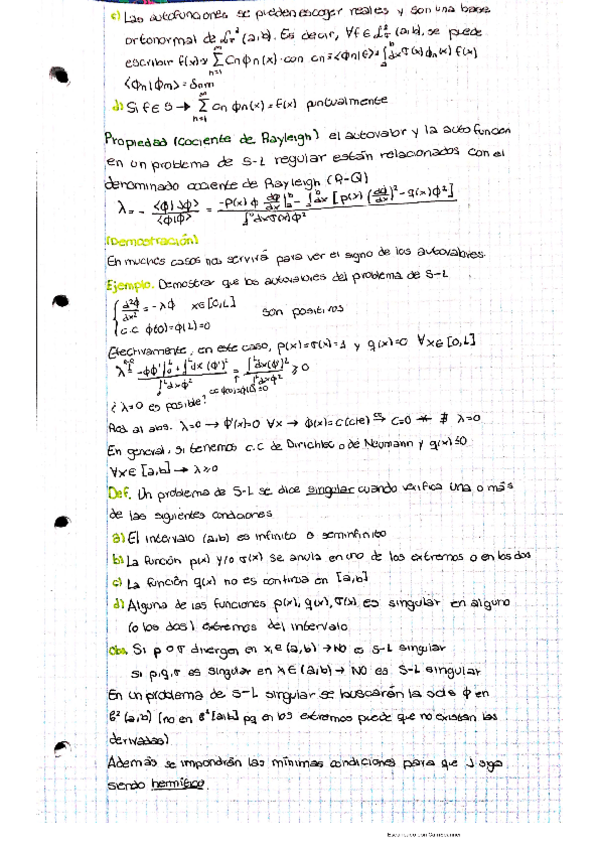 c) Las autofunciones se pueden escoger reales y son una base
ortonormal de L²σ (a,b). Es decir, ∀f ∈ L²σ (a,b), se puede
escribir f(x) = Σ cn φn(x) con cn = <φn|f> = ∫ dx σ(x) φn(x) f(x)
<φn|φm> = δnm
d) Si f ∈ S → Σ cn φn(x) = f(x) puntualmente
Propiedad (Cociente de Rayleigh) el autovalor y la autofunción
en un problema de S-L regular están relacionados con el
denominado cociente de Rayleigh (R-Q)
λ = - <φ|Jφ> / <φ|φ> = ( -p(x) φ dφ/dx |ₐᵇ - ∫ₐᵇ dx [p(x) (dφ/dx)² - q(x) φ²] ) / ∫ₐᵇ dx σ(x) φ²
(Demostración)
En muchos casos nos servirá para ver el signo de los autovalores.
Ejemplo. Demostrar que los autovalores del problema de S-L
{ d²φ/dx² = -λφ x∈[0,L]
c.c φ(0)=φ(L)=0 son positivos
Efectivamente, en este caso, p(x)=σ(x)=1 y q(x)=0 ∀x∈[0,L]
λ = ( -φφ'|₀ᴸ + ∫₀ᴸ dx (φ')² ) / ∫₀ᴸ dx φ² = ∫₀ᴸ dx (φ')² / ∫₀ᴸ dx φ² ≥ 0
cc φ(0)=φ(L)=0
¿λ=0 es posible?
Red al abs. λ=0 → φ'(x)=0 ∀x → φ(x)=c (cte) → c=0 ∄ λ=0
En general, si tenemos c.c de Dirichlec o de Neumann y q(x)≤0
∀x∈[a,b] → λ≥0
Def. Un problema de S-L se dice singular cuando verifica una o más
de las siguientes condiciones
a) El intervalo (a,b) es infinito o seminfinito
b) La función p(x) y/o σ(x) se anula en uno de los extremos o en los dos
c) La función q(x) no es continua en [a,b]
d) Alguna de las funciones p(x), q(x), σ(x) es singular en alguno
(o los dos) extremos del intervalo
Obs. Si p o σ divergen en x₁∈(a,b) → NO es S-L singular
si p,q,σ es singular en x∈(a,b) → NO es S-L singular
En un problema de S-L singular se buscarán la sols φ en
C²(a,b) (no en C²[a,b] pq en los extremos puede que no existan las
derivadas)
Además se impondrán las mínimas condiciones para que J siga
siendo hermítico.
Escaneado con CamScanner